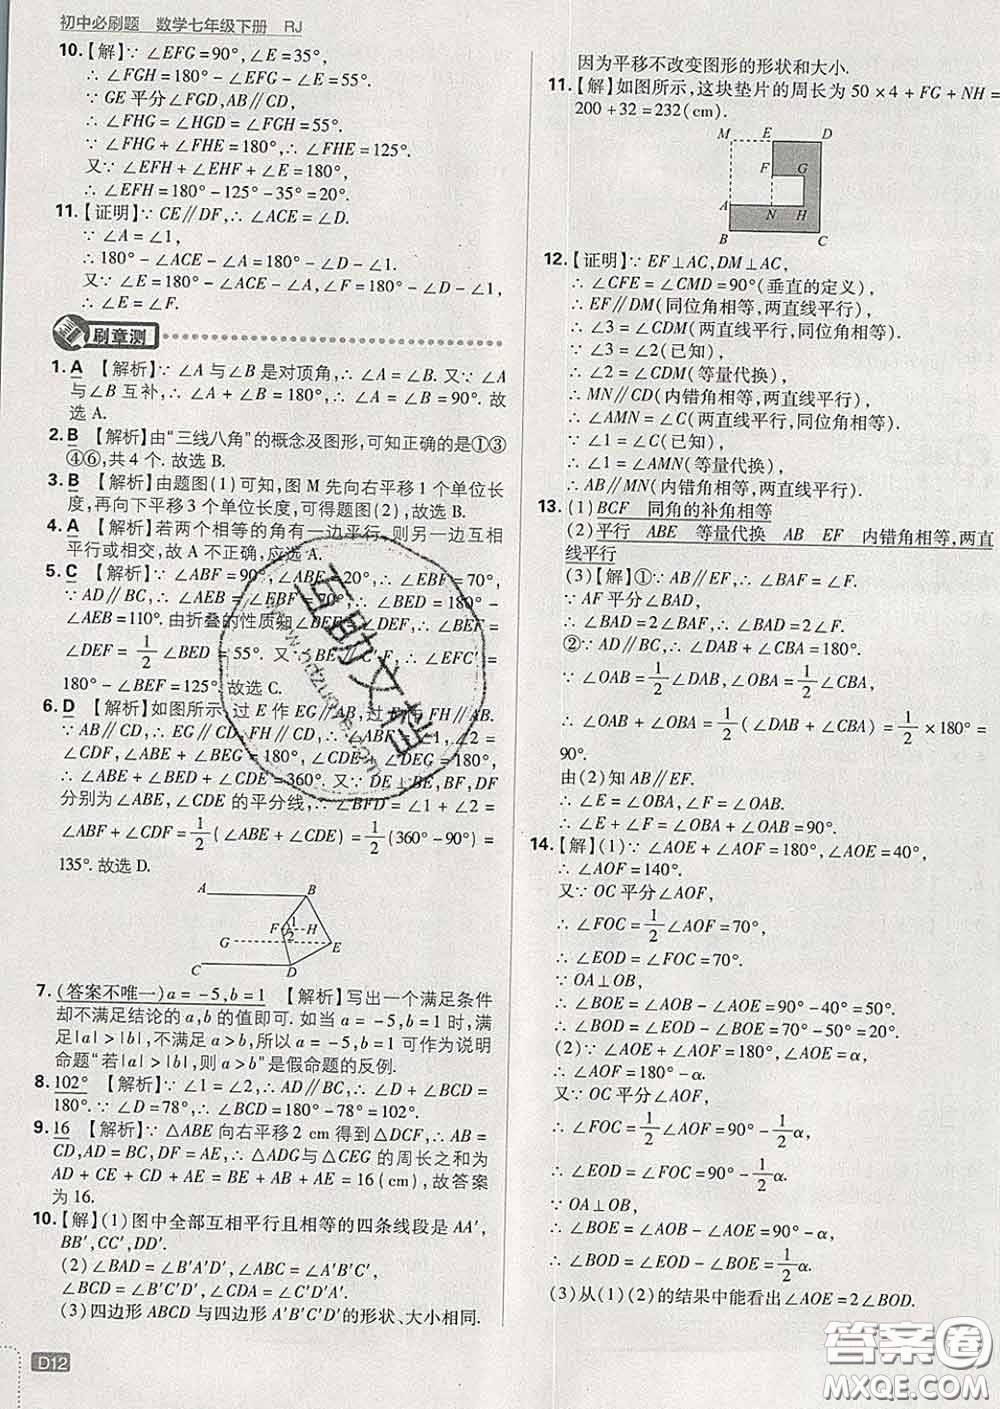 初中必刷题 数学七年级下册 RJ
10.【解】∵ ∠EFG=90°,∠E=35°,
∴ ∠FGH=180°-∠EFG-∠E=55°.
∵ GE平分∠FGD,AB∥CD,
∴ ∠FHG=∠HGD=∠FGH=55°.
∵ ∠FHG+∠FHE=180°,∴ ∠FHE=125°.
又∵ ∠EFH+∠EHF+∠E=180°,
∴ ∠EFH=180°-125°-35°=20°.
11.【证明】∵ CE∥DF,∴ ∠ACE=∠D.
∵ ∠A=∠1,
∴ 180°-∠ACE-∠A=180°-∠D-∠1.
又∵ ∠E=180°-∠ACE-∠A,∠F=180°-∠D-∠1,
∴ ∠E=∠F.
刷章测
1. A 【解析】∵ ∠A与∠B是对顶角,∴ ∠A=∠B.又∵ ∠A
与∠B互补,∴ ∠A+∠B=180°,∴ ∠A=∠B=90°.故
选A.
2. B 【解析】由“三线八角”的概念及图形,可知正确的是①③
④⑥,共4个.故选B.
3. B 【解析】由题图(1)可知,图M先向右平移1个单位长
度,再向下平移3个单位长度,可得题图(2),故选B.
4. A 【解析】若两个相等的角有一边平行,则另一边互相
平行或相交,故A不正确,应选A.
5. C 【解析】∵ ∠ABF=90°,∠ABE=20°,∴ ∠EBF=70°.
∵ AD∥BC,∴ ∠AEB=∠EBF=70°,∴ ∠BED=180°-
∠AEB=110°.由折叠的性质知∠BEF=∠DEF,∴ ∠BEF=
∠DEF=1/2∠BED=55°.又∵ BE∥C′F,∴ ∠EFC′=
180°-∠BEF=125°.故选C.
6. D 【解析】如图所示,过E作EG∥AB,过F作FH∥AB.
∵ AB∥CD,∴ EG∥CD,FH∥CD,∴ ∠ABF=∠1,∠2=
∠CDF,∠ABE+∠BEG=180°,∠CDE+∠DEG=180°,
∴ ∠ABE+∠BED+∠CDE=360°.又∵ DE⊥BE,BF,DF
分别为∠ABE,∠CDE的平分线,∴ ∠BFD=∠1+∠2=
∠ABF+∠CDF=1/2(∠ABE+∠CDE)=1/2(360°-90°)=
135°.故选D.
A B
F 1 H
2
G E
C D
7. (答案不唯一)a=-5,b=1 【解析】写出一个满足条件
却不满足结论的a,b的值即可.如当a=-5,b=1时,满
足|a|>|b|,不满足a>b,所以a=-5,b=1可作为说明
命题“若|a|>|b|,则a>b”是假命题的反例.
8. 102° 【解析】∵ ∠1=∠2,∴ AD∥BC,∴ ∠D+∠BCD=
180°.∵ ∠D=78°,∴ ∠BCD=180°-78°=102°.
9. 16 【解析】∵ △ABE向右平移2 cm得到△DCF,∴ AB=
CD,AD=BC,DF=AE,∴ △ADG与△CEG的周长之和为
AD+CE+CD+AE=BE+AB+AE=16(cm),故答案
为16.
10.【解】(1)图中全部互相平行且相等的四条线段是AA′,
BB′,CC′,DD′.
(2)∠BAD=∠B′A′D′,∠ABC=∠A′B′C′,
∠BCD=∠B′C′D′,∠CDA=∠C′D′A′.
(3)四边形ABCD与四边形A′B′C′D′的形状、大小相同.
D12
因为平移不改变图形的形状和大小.
11.【解】如图所示,这块垫片的周长为50×4+FG+NH=
200+32=232(cm).
M E D
F G
A N H
B C
12.【证明】∵ EF⊥AC,DM⊥AC,
∴ ∠CFE=∠CMD=90°(垂直的定义),
∴ EF∥DM(同位角相等,两直线平行),
∴ ∠3=∠CDM(两直线平行,同位角相等).
∵ ∠3=∠2(已知),
∴ ∠2=∠CDM(等量代换),
∴ MN∥CD(内错角相等,两直线平行),
∴ ∠AMN=∠C(两直线平行,同位角相等).
∵ ∠1=∠C(已知),
∴ ∠1=∠AMN(等量代换),
∴ AB∥MN(内错角相等,两直线平行).
13. (1) BCF 同角的补角相等
(2) 平行 ABE 等量代换 AB EF 内错角相等,两直
线平行
(3)【解】①∵ AB∥EF,∴ ∠BAF=∠F.
∵ AF平分∠BAD,
∴ ∠BAD=2∠BAF,∴ ∠BAD=2∠F.
②∵ AD∥BC,∴ ∠DAB+∠CBA=180°.
∵ ∠OAB=1/2∠DAB,∠OBA=1/2∠CBA,
∴ ∠OAB+∠OBA=1/2(∠DAB+∠CBA)=1/2×180°=
90°.
由(2)知AB∥EF.
∴ ∠E=∠OBA,∠F=∠OAB.
∴ ∠E+∠F=∠OBA+∠OAB=90°.
14.【解】(1)∵ ∠AOE+∠AOF=180°,∠AOE=40°,
∴ ∠AOF=140°.
又∵ OC平分∠AOF,
∴ ∠FOC=1/2∠AOF=70°,
∴ ∠EOD=∠FOC=70°.
∵ OA⊥OB,
∴ ∠BOE=∠AOB-∠AOE=90°-40°=50°,
∴ ∠BOD=∠EOD-∠BOE=70°-50°=20°.
(2)∵ ∠AOE+∠AOF=180°,∠AOE=α,
∴ ∠AOF=180°-α.
又∵ OC平分∠AOF,
∴ ∠FOC=1/2∠AOF=90°-1/2α,
∴ ∠EOD=∠FOC=90°-1/2α.
∵ OA⊥OB,
∴ ∠BOE=∠AOB-∠AOE=90°-α,
∴ ∠BOD=∠EOD-∠BOE=1/2α.
(3)从(1)(2)的结果中能看出∠AOE=2∠BOD.
互助文档
答案圈
MXQE.COM